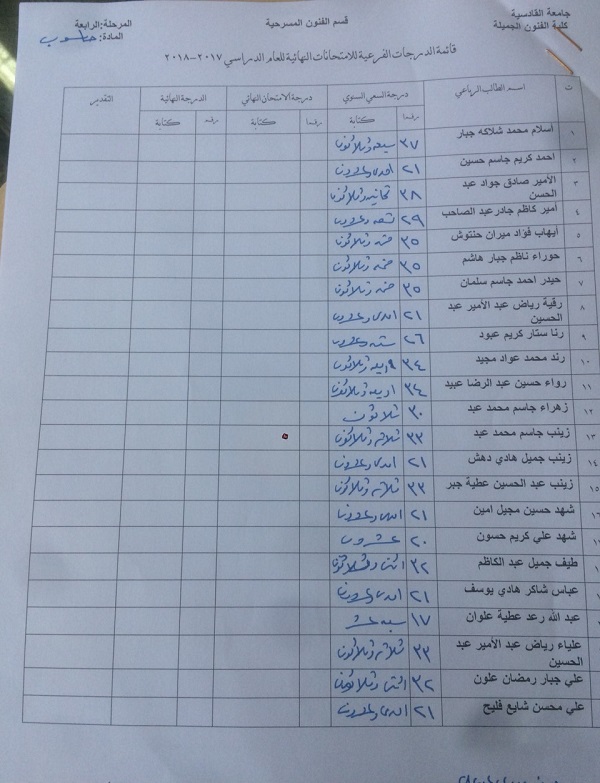 جامعة القادسية
كلية الفنون الجميلة
قسم الفنون المسرحية
المرحلة:الرابعة
المادة: حاسوب
قائمة الدرجات الفرعية للامتحانات النهائية للعام الدراسي ٢٠١٧-٢٠١٨
ت اسم الطالب الرباعي درجة السعي السنوي درجة الامتحان النهائي الدرجة النهائية التقدير
رقما كتابة رقما كتابة رقم كتابة
١ اسلام محمد شلاكه جبار ٣٧ سبعة وثلاثون
٢ احمد كريم جاسم حسين ٢١ احدى وعشرون
٣ الأمير صادق جواد عبد الحسن ٣٨ ثمانية وثلاثون
٤ أمير كاظم جادر عبد الصاحب ٢٩ تسعه وعشرون
٥ ايهاب فؤاد ميران حنتوش ٣٥ خمسه وثلاثون
٦ حوراء ناظم جبار هاشم ٣٥ خمسه وثلاثون
٧ حيدر احمد جاسم سلمان ٣٥ خمسه وثلاثون
٨ رقية رياض عبد الأمير عبد الحسين ٢١ احدى وعشرون
٩ رنا ستار كريم عبود ٢٦ سته وعشرون
١٠ رند محمد عواد مجيد ٣٤ اربعه وثلاثون
١١ رواء حسين عبد الرضا عبيد ٣٤ اربعه وثلاثون
١٢ زهراء جاسم محمد عبد ٣٠ ثلاثون
١٣ زينب جاسم محمد عبد ٣٣ ثلاثه وثلاثون
١٤ زينب جميل هادي دهش ٢١ احدى وعشرون
١٥ زينب عبد الحسين عطية جبر ٣٣ ثلاثه وثلاثون
شهد حسين مجيل امين ٢١ احدى وعشرون
شهد علي كريم حسون ٢٠ عشرون
طيف جميل عبد الكاظم ٣٢ اثنان وثلاثون
عباس شاكر هادي يوسف ٢١ احدى وعشرون
عبد الله رعد عطية علوان ١٧ سبعة عشر
علياء رياض عبد الأمير عبد الحسين ٣٣ ثلاثه وثلاثون
علي جبار رمضان علون ٣٢ اثنان وثلاثون
علي محسن شايع فليح ٢١ احدى وعشرون